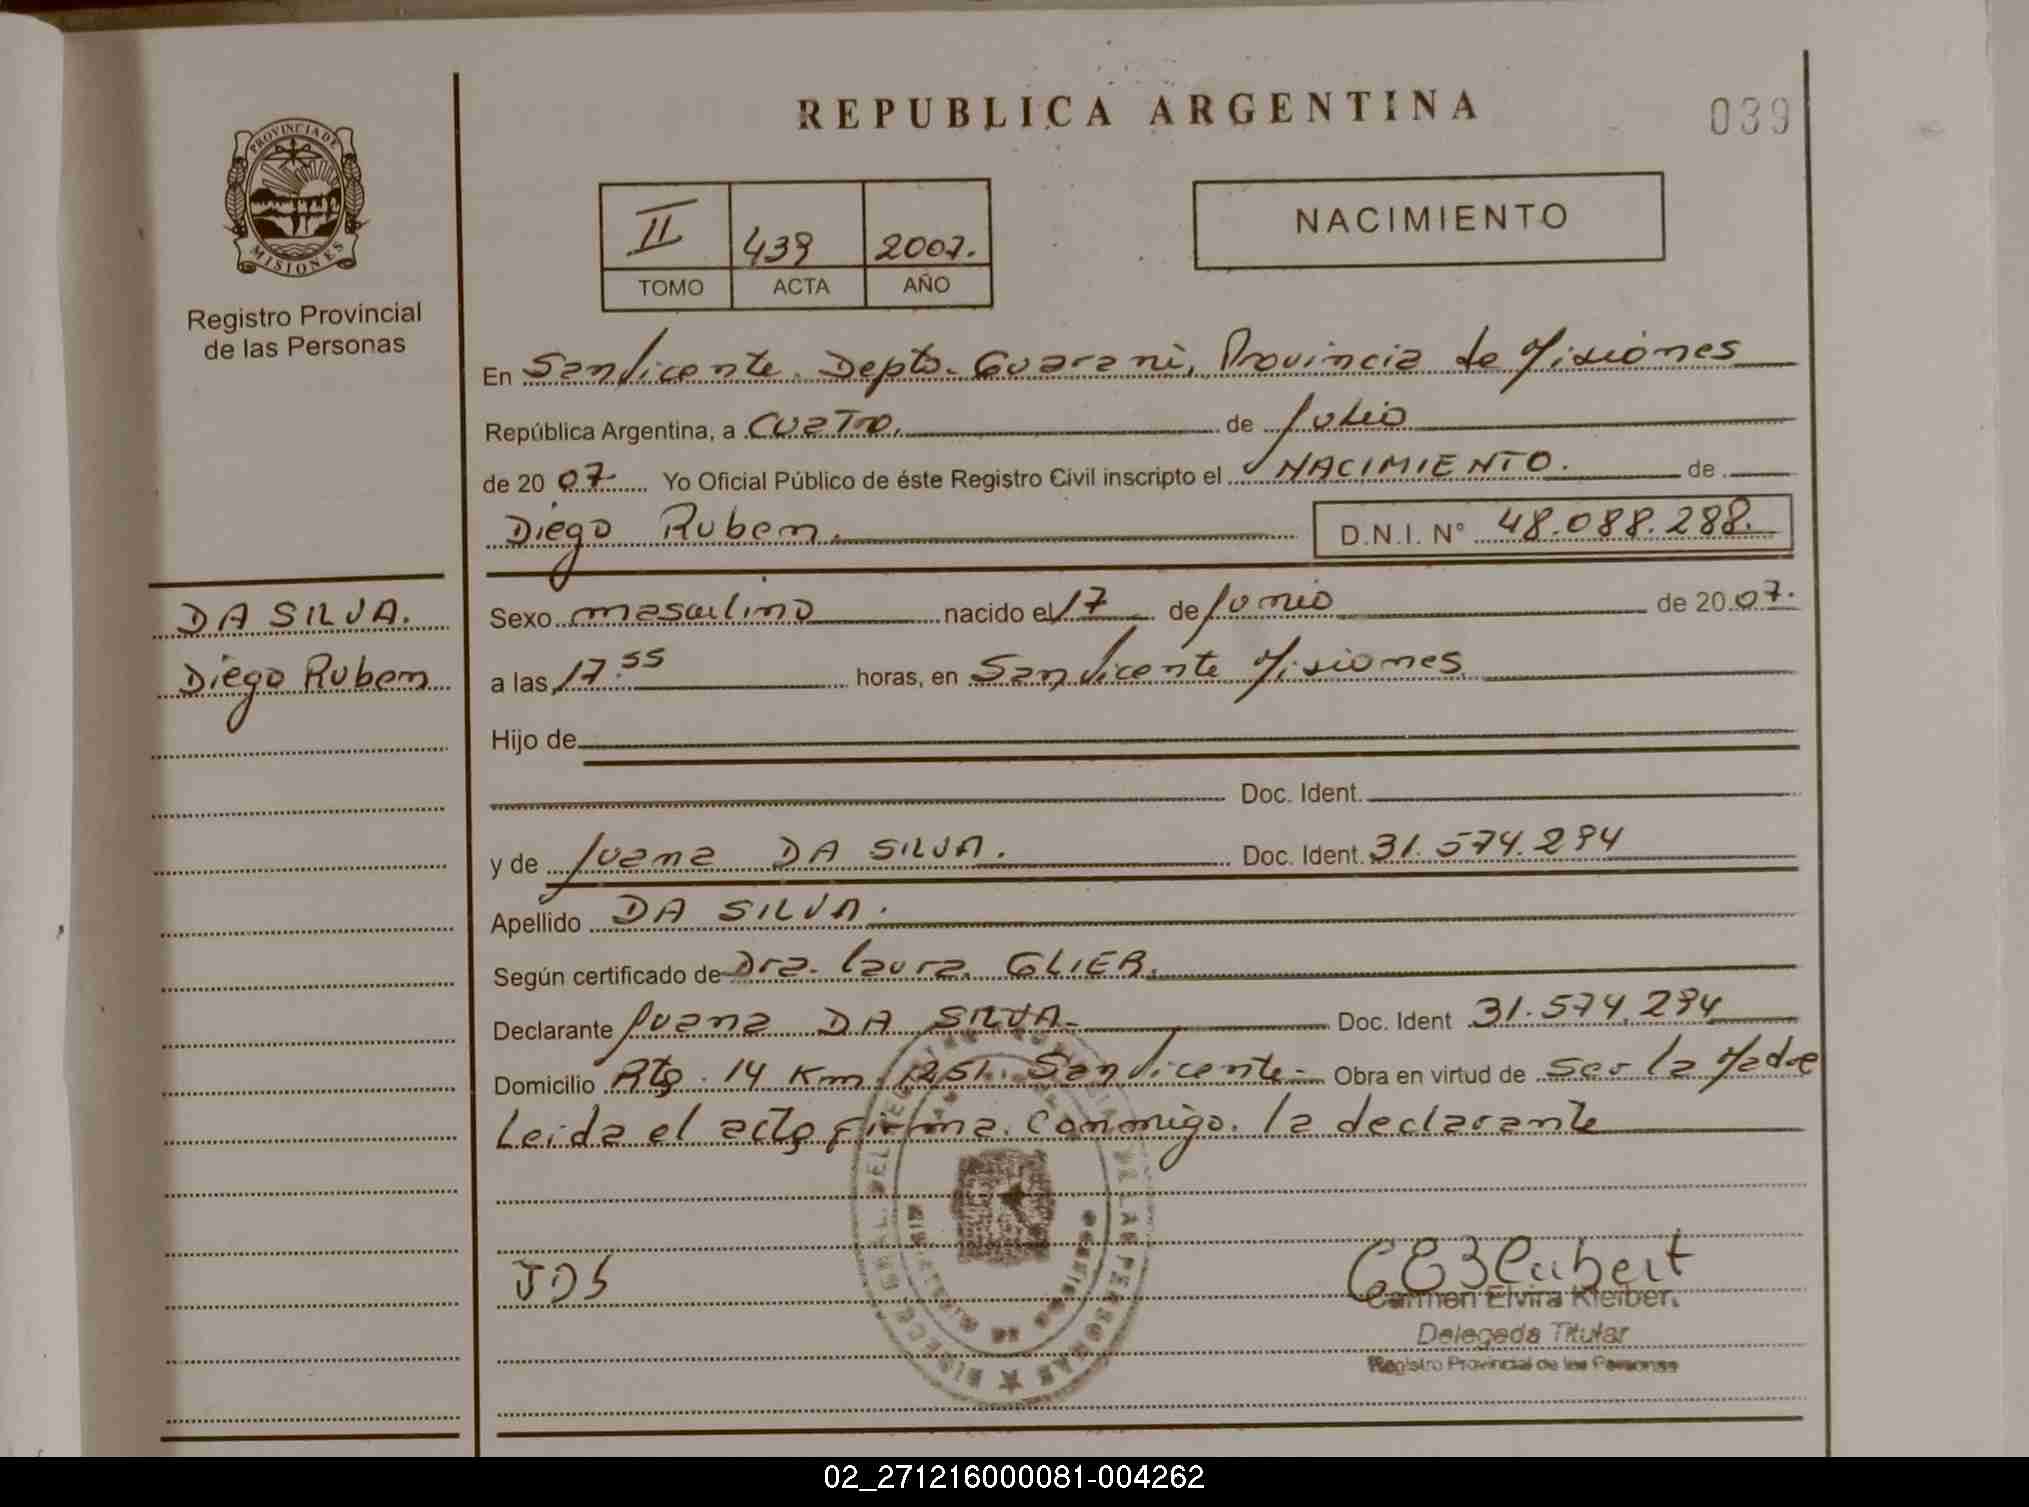 REPUBLICA ARGENTINA
039
PROVINCIA DE
MISIONES
Registro Provincial
de las Personas
II 439 2007.
TOMO ACTA AÑO
NACIMIENTO
En San Vicente. Depto. Guarani, Provincia de Misiones
República Argentina, a cuatro. de Julio
de 20 07 Yo Oficial Público de éste Registro Civil inscripto el NACIMIENTO. de
Diego Ruben. D.N.I. Nº 48.088.288.
DA SILVA.
Diego Ruben
Sexo masculino nacido el 17 de Junio de 20 07.
a las 17.55 horas, en San Vicente Misiones
Hijo de
Doc. Ident.
y de Juana DA SILVA. Doc. Ident. 31.574.294
Apellido DA SILVA.
Según certificado de Dra. Laura GLIER.
Declarante Juana DA SILVA. Doc. Ident 31.574.294
Domicilio Rta. 14 Km. 1251. San Vicente. Obra en virtud de ser la Madre
Leida el acta firma conmigo. la declarante
JDS
Carmen Elvira Kleiber.
Delegada Titular
Registro Provincial de las Personas
DE LAS PERSONAS
02_271216000081-004262